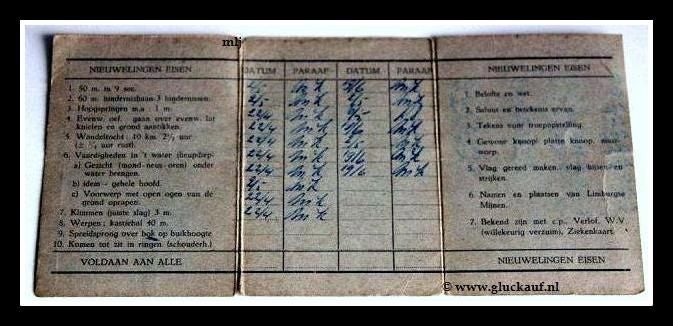 NIEUWELINGEN EISEN
1. 50 m. in 9 sec.
2. 60 m. hindernisbaan 3 hindernissen.
3. Hoogspringen m.a. : 1 m.
4. Evenw. oef. gaan over evenw. lat
knielen en grond aantikken.
5. Wandeltocht : 10 km. 2½ uur
uur rust).
6. Vaardigheden in 't water (heupdiep)
a) Gezicht (mond-neus-oren) onder
water brengen.
b) idem - gehele hoofd.
c) Voorwerp met open ogen van de
grond oprapen.
7. Klimmen (juiste slag) 3 m.
8. Werpen : kastiebal 40 m.
9. Spreidsprong over bok op buikhoogte
10. Komen tot zit in ringen (schouderh.)
VOLDAAN AAN ALLE
mlj
DATUM PARAAF DATUM PARAAF
22/4
22/4
22/4
22/4
19/6
22/4
22/4
NIEUWELINGEN EISEN
1. Belofte en wet.
2. Saluut en betekenis ervan.
3. Tekens voor troepopstelling.
4. Gewone knoop, platte knoop, mast-
worp.
5. Vlag gereed maken, vlag hijsen en
strijken.
6. Namen en plaatsen van Limburgse
Mijnen.
7. Bekend zijn met c.p., Verlof, W.V.
(willekeurig verzuim), Ziekenkaart.
NIEUWELINGEN EISEN
© www.gluckauf.nl